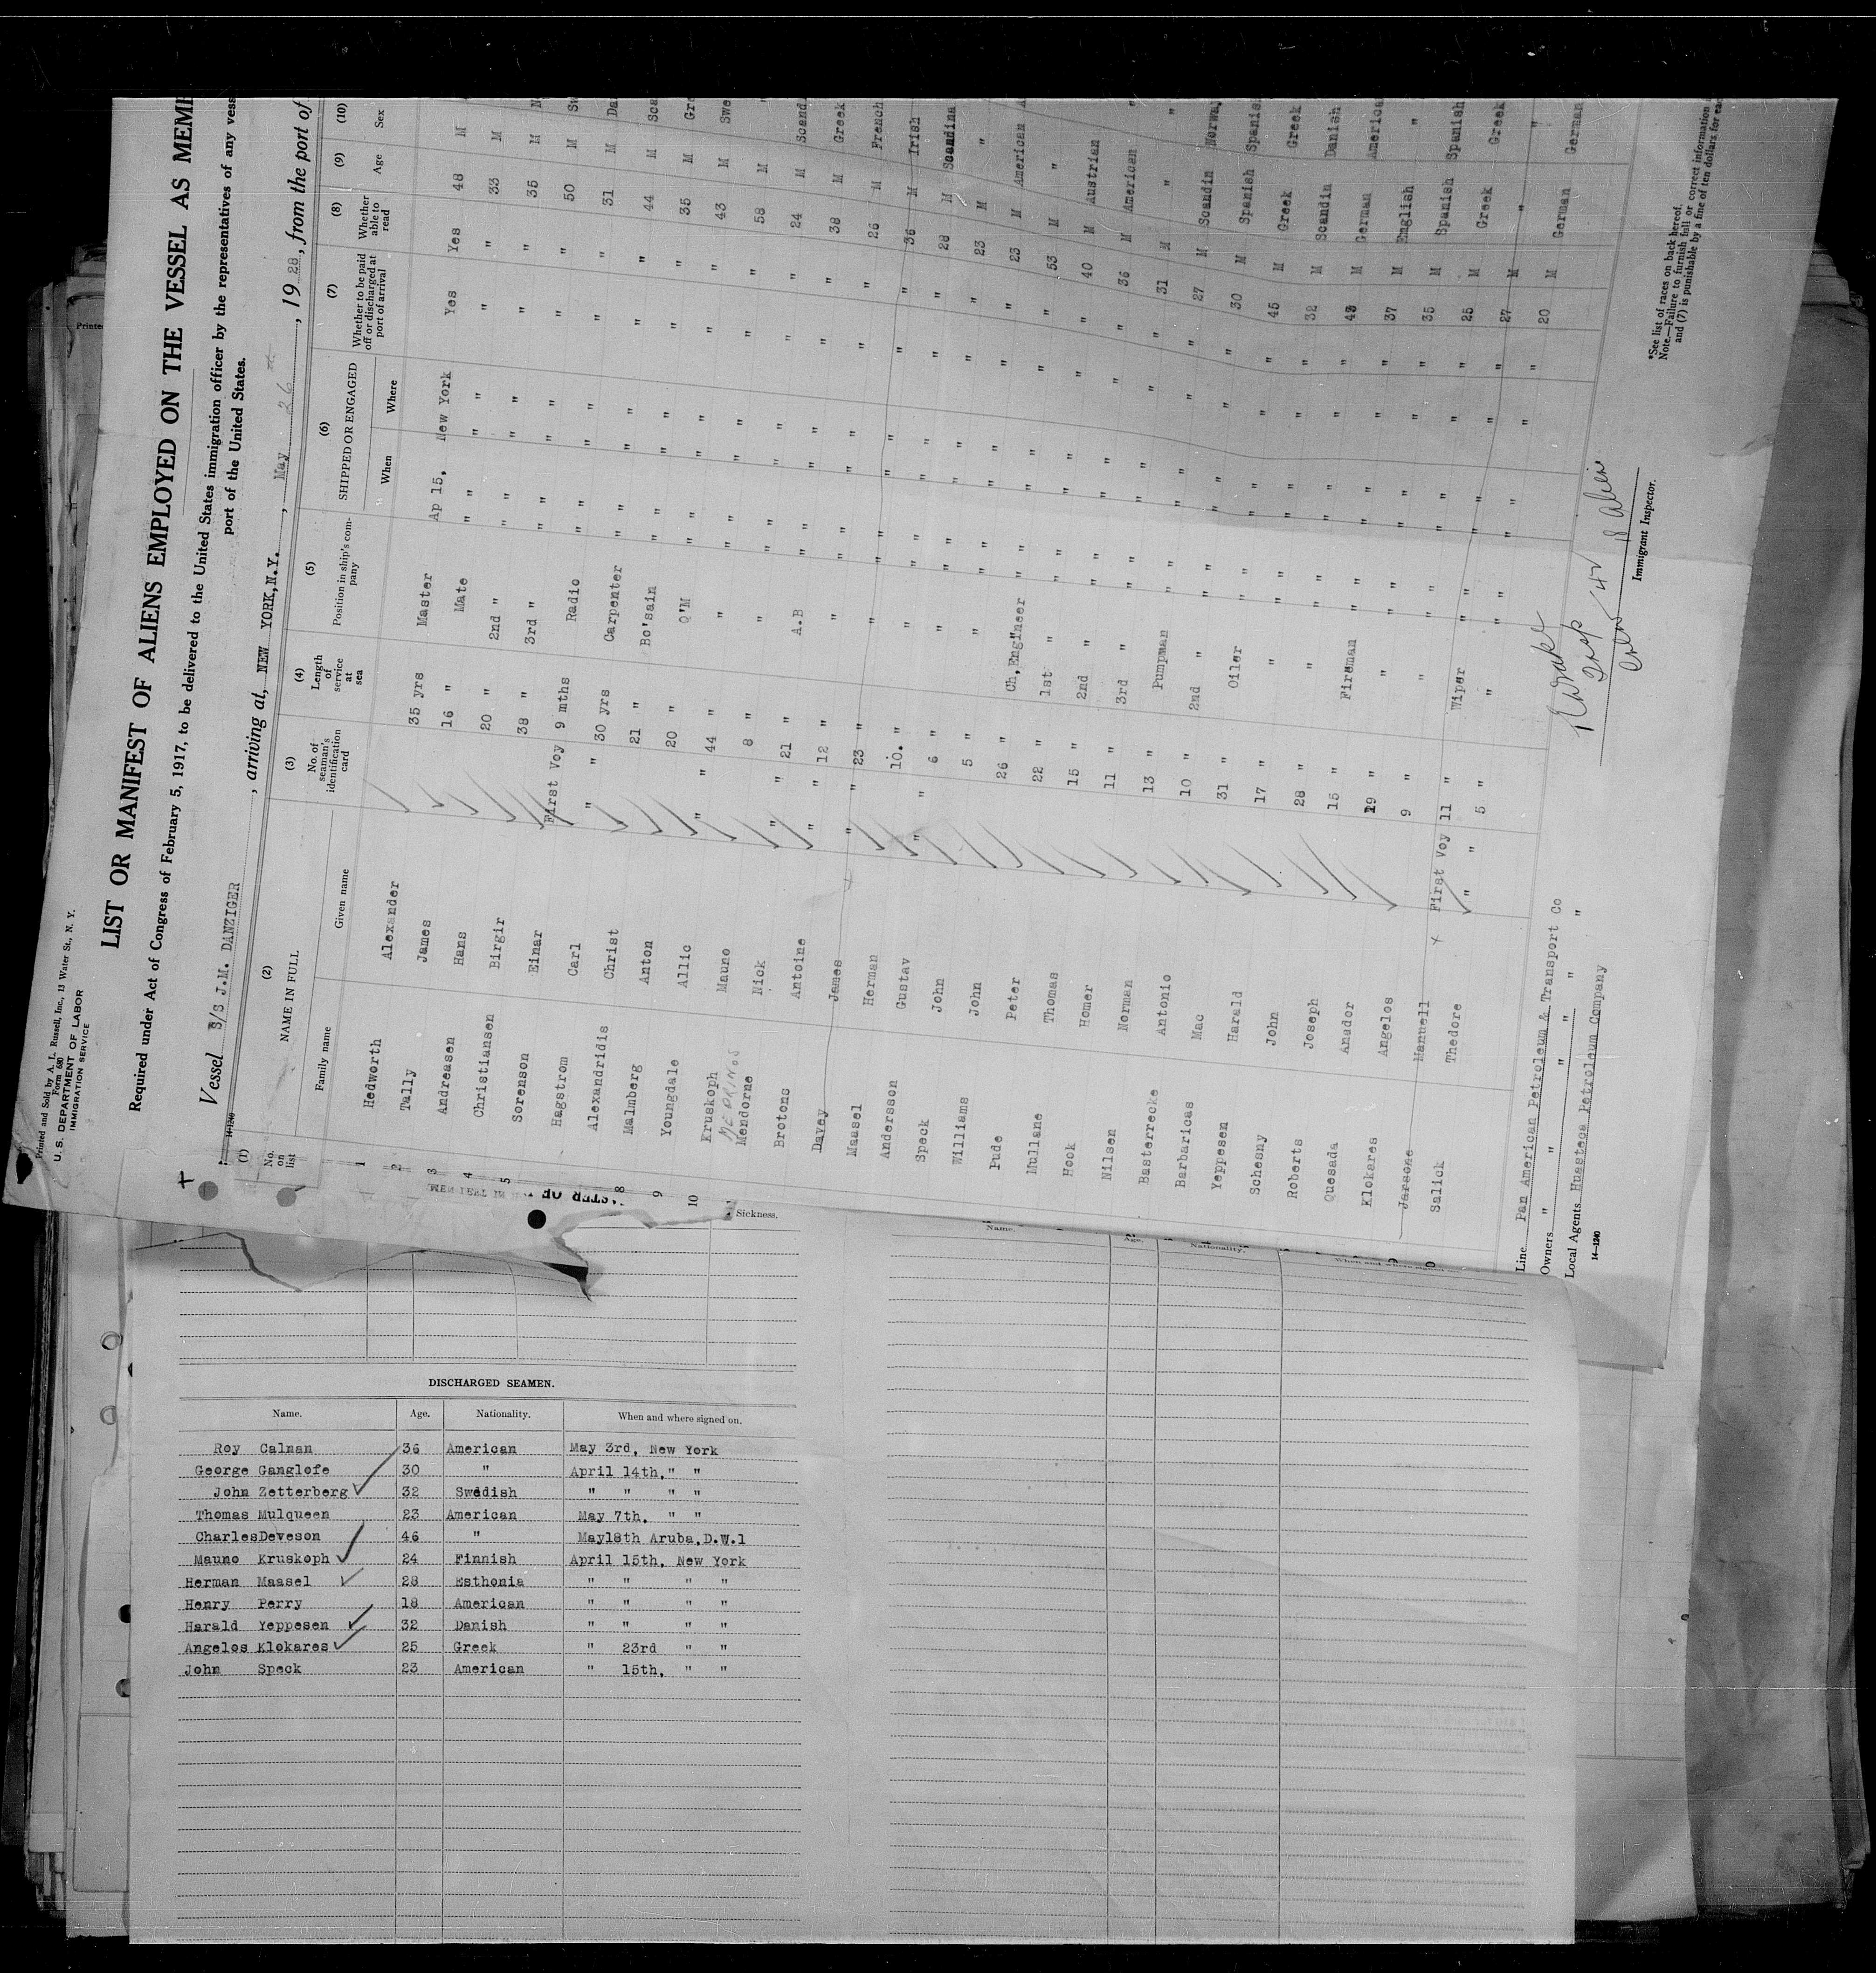 Printed and Sold by A. L. Russell, Inc., 13 Water St., N. Y.
Form 680
U. S. DEPARTMENT OF LABOR
IMMIGRATION SERVICE
LIST OR MANIFEST OF ALIENS EMPLOYED ON THE VESSEL AS MEM
Required under Act of Congress of February 5, 1917, to be delivered to the United States immigration officer by the representatives of any vess
port of the United States.
Vessel S/S J.M. DANZIGER, arriving at, NEW YORK,N.Y., May 26, 1928, from the port of
14-1240
(1) (2) (3) (4) (5) (6) (7) (8) (9) (10)
No. on list NAME IN FULL No. of seaman's identification card Length of service at sea Position in ship's company SHIPPED OR ENGAGED Whether to be paid off or discharged at port of arrival Whether able to read Age Sex
Family name Given name When Where
1 Hedworth Alexander 35 yrs Master Ap 15, New York Yes Yes 48 M
2 Tally James 16 " Mate " " " " 33 M
3 Andreasen Hans 20 " 2nd " " " " " 35 M
4 Christiansen Birgir 38 " 3rd " " " " " 50 M
5 Sorenson Einar First Voy 9 mths Radio " " " " 31 M
Hagstrom Carl " 30 yrs Carpenter " " " " 44 M
Alexandridis Christ 21 " Bo'sain " " " " 35 M
8 Malmberg Anton 20 " Q'M " " " " 43 M
9 Youngdale Allic " 44 " " " " " " 58 M
10 Kruskoph Mauno 8 " " " " " " 24 M Scand
MEDRINOS
Mendorne Nick " 21 " A.B " " " " 38 M Greek
Brotons Antoine " 12 " " " " " " 26 M French
Davey James " 23 " " " " " 36 M Irish
Maasel Herman 10. " " " " " " 28 M Scandina
Andersson Gustav " 6 " " " " " " 23 M "
Speck John 5 " " " " " " 23 M American
Williams John 26 " Ch,Engineer " " " " 53 M "
Pude Peter 22 " 1st " " " " " 40 M Austrian
Mullane Thomas 15 " 2nd " " " " " 36 M American
Hook Homer 11 " 3rd " " " " " 31 M " "
Nilsen Norman 13 " Pumpman " " " " 27 M Scandin Norway
Basterrecke Antonio 10 " 2nd " " " " " 30 M Spanish Spanis
Barbaricas Mac 31 " Oiler " " " " 45 M Greek Greek
Yeppesen Harald 17 " " " " " " 32 M Scandin Danish
Schesny John 28 " " " " " " 43 M German America
Roberts Joseph 15 " Fireman " " " " 37 M English "
Quesada Anador 19 " " " " " " 35 M Spanish Spanish
Klokares Angelos 9 " " " " " " 25 M Greek Greek
Jarsone Manuell First Voy 11 " Wiper " " " " 27 M " "
Salick Thedore " " 5 " " " " " " 20 M German German
Line Pan American Petroleum & Transport Co
Owners " " " " "
Local Agents Huasteca Petroleum Company
14-1240
Immigrant Inspector.
*See list of races on back hereof.
Note.—Failure to furnish full or correct information
and (7) is punishable by a fine of ten dollars for eac
Sickness.
Name. Age. Nationality.
DISCHARGED SEAMEN.
Name. Age. Nationality. When and where signed on.
Roy Calnan 36 American May 3rd, New York
George Ganglofe 30 " April 14th, " "
John Zetterberg 32 Swedish " " " "
Thomas Mulqueen 23 American May 7th, " "
CharlesDeveson 46 " May18th Aruba,D.W.1
Mauno Kruskoph 24 Finnish April 15th, New York
Herman Maasel 28 Esthonia " " " "
Henry Perry 18 American " " " "
Harald Yeppesen 32 Danish " " " "
Angelos Klokares 25 Greek " 23rd " "
John Speck 23 American " 15th, " "